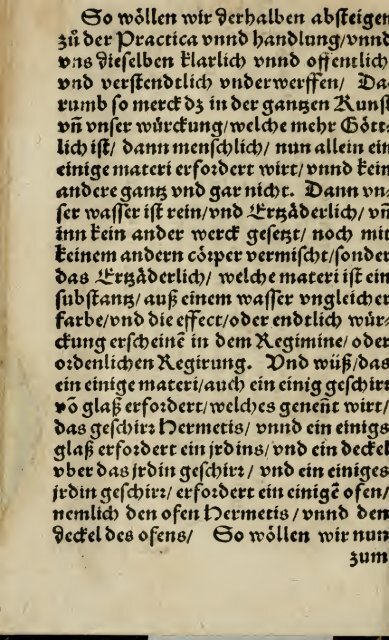 So wöllen wir derhalben absteigen
zů der Practica vnnd handlung/vnnd
vns dieselben klarlich vnnd offentlich
vnd verstendtlich vnderwerffen/ Da-
rumb so merck dz in der gantzen Kunst
vñ vnser würckung/welche mehr Gött-
lich ist/ dann menschlich/ nun allein ein
einige materi erfordert wirt/vnnd kein
andere gantz vnd gar nicht. Dann vn-
ser wasser ist rein/vnd Ertzåderlich/ vñ
inn kein ander werck gesetzt/ noch mit
keinem andern cörper vermischt/sonder
das Ertzåderlich/ welche materi ist ein
substantz/ auß einem wasser vngleicher
farbe/vnd die effect/oder endtlich wür-
ckung erscheinẽ in dem Regimine/ oder
ordenlichen Regirung. Vnd wüß/das
ein einige materi/auch ein einig geschirr
võ glaß erfordert/welches genent wirt/
das geschirr Hermetis/ vnnd ein einigs
glaß erfordert ein jrdins/vnd ein deckel
vber das jrdin geschirr/ vnd ein einiges
jrdin geschirr/ erfordert ein einigẽ ofen/
nemlich den ofen Hermetis/vnnd den
deckel des ofens/ So wöllen wir nun
zum